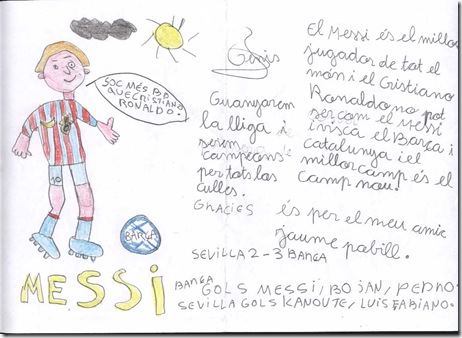 SOC MÉS BO
QUE CRISTIANO
RONALDO.
10
BARÇA
MESSI
Guanyarem
la lliga i
serem
campions
per tots los
culles.
GRACIES
El Messi és el millor
jugador de tot el
món i el Cristiano
Ronaldo no pot
ser com el Messi
i visca el Barça i
catalunya i el
millor camp és el
camp nou.
és per el meu amic
jaume pabill.
SEVILLA 2-3 BARÇA
BARÇA
GOLS MESSI, BOJAN, PEDRO.
SEVILLA GOLS KANOUTE, LUIS FABIANO.